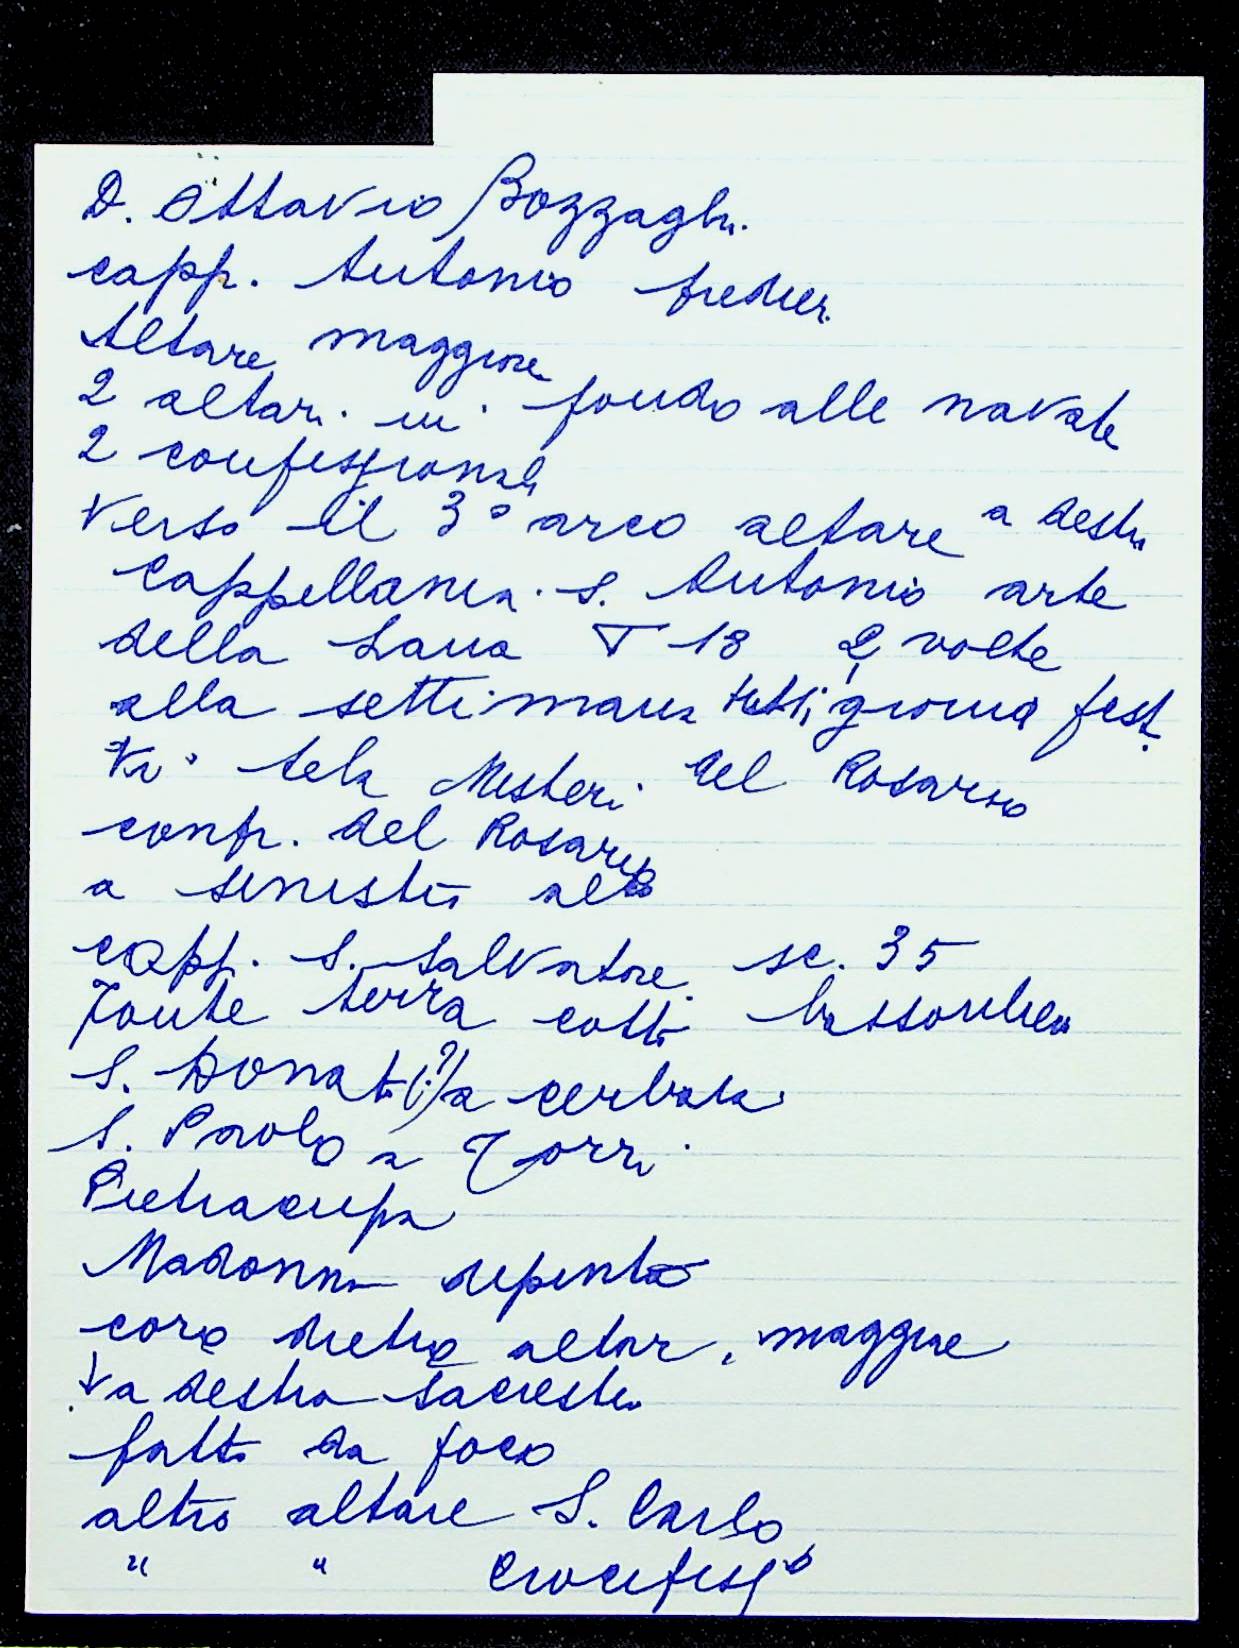 D. Ottavio Bozzaghi
capp. Antonio
Altare maggiore
2 altari in fondo alle navate
2 confessionali
Verso il 3° arco altare a destra
Cappellania S. Antonio arte
della Lana T 18 2 volte
alla settimana tutti giorni fest.
tela Misteri del Rosario
confr. del Rosario
a sinistra alt
capp. S. Salvatore sc. 35
Fonte terra cotta
S. Donato (?) a cerbaia
S. Paolo a Torri
Pietracupa
Madonna dipinta
coro dietro altar. maggiore
a destra sacrestia
fatto da foco
altro altare S. Carlo
" " Crocifisso